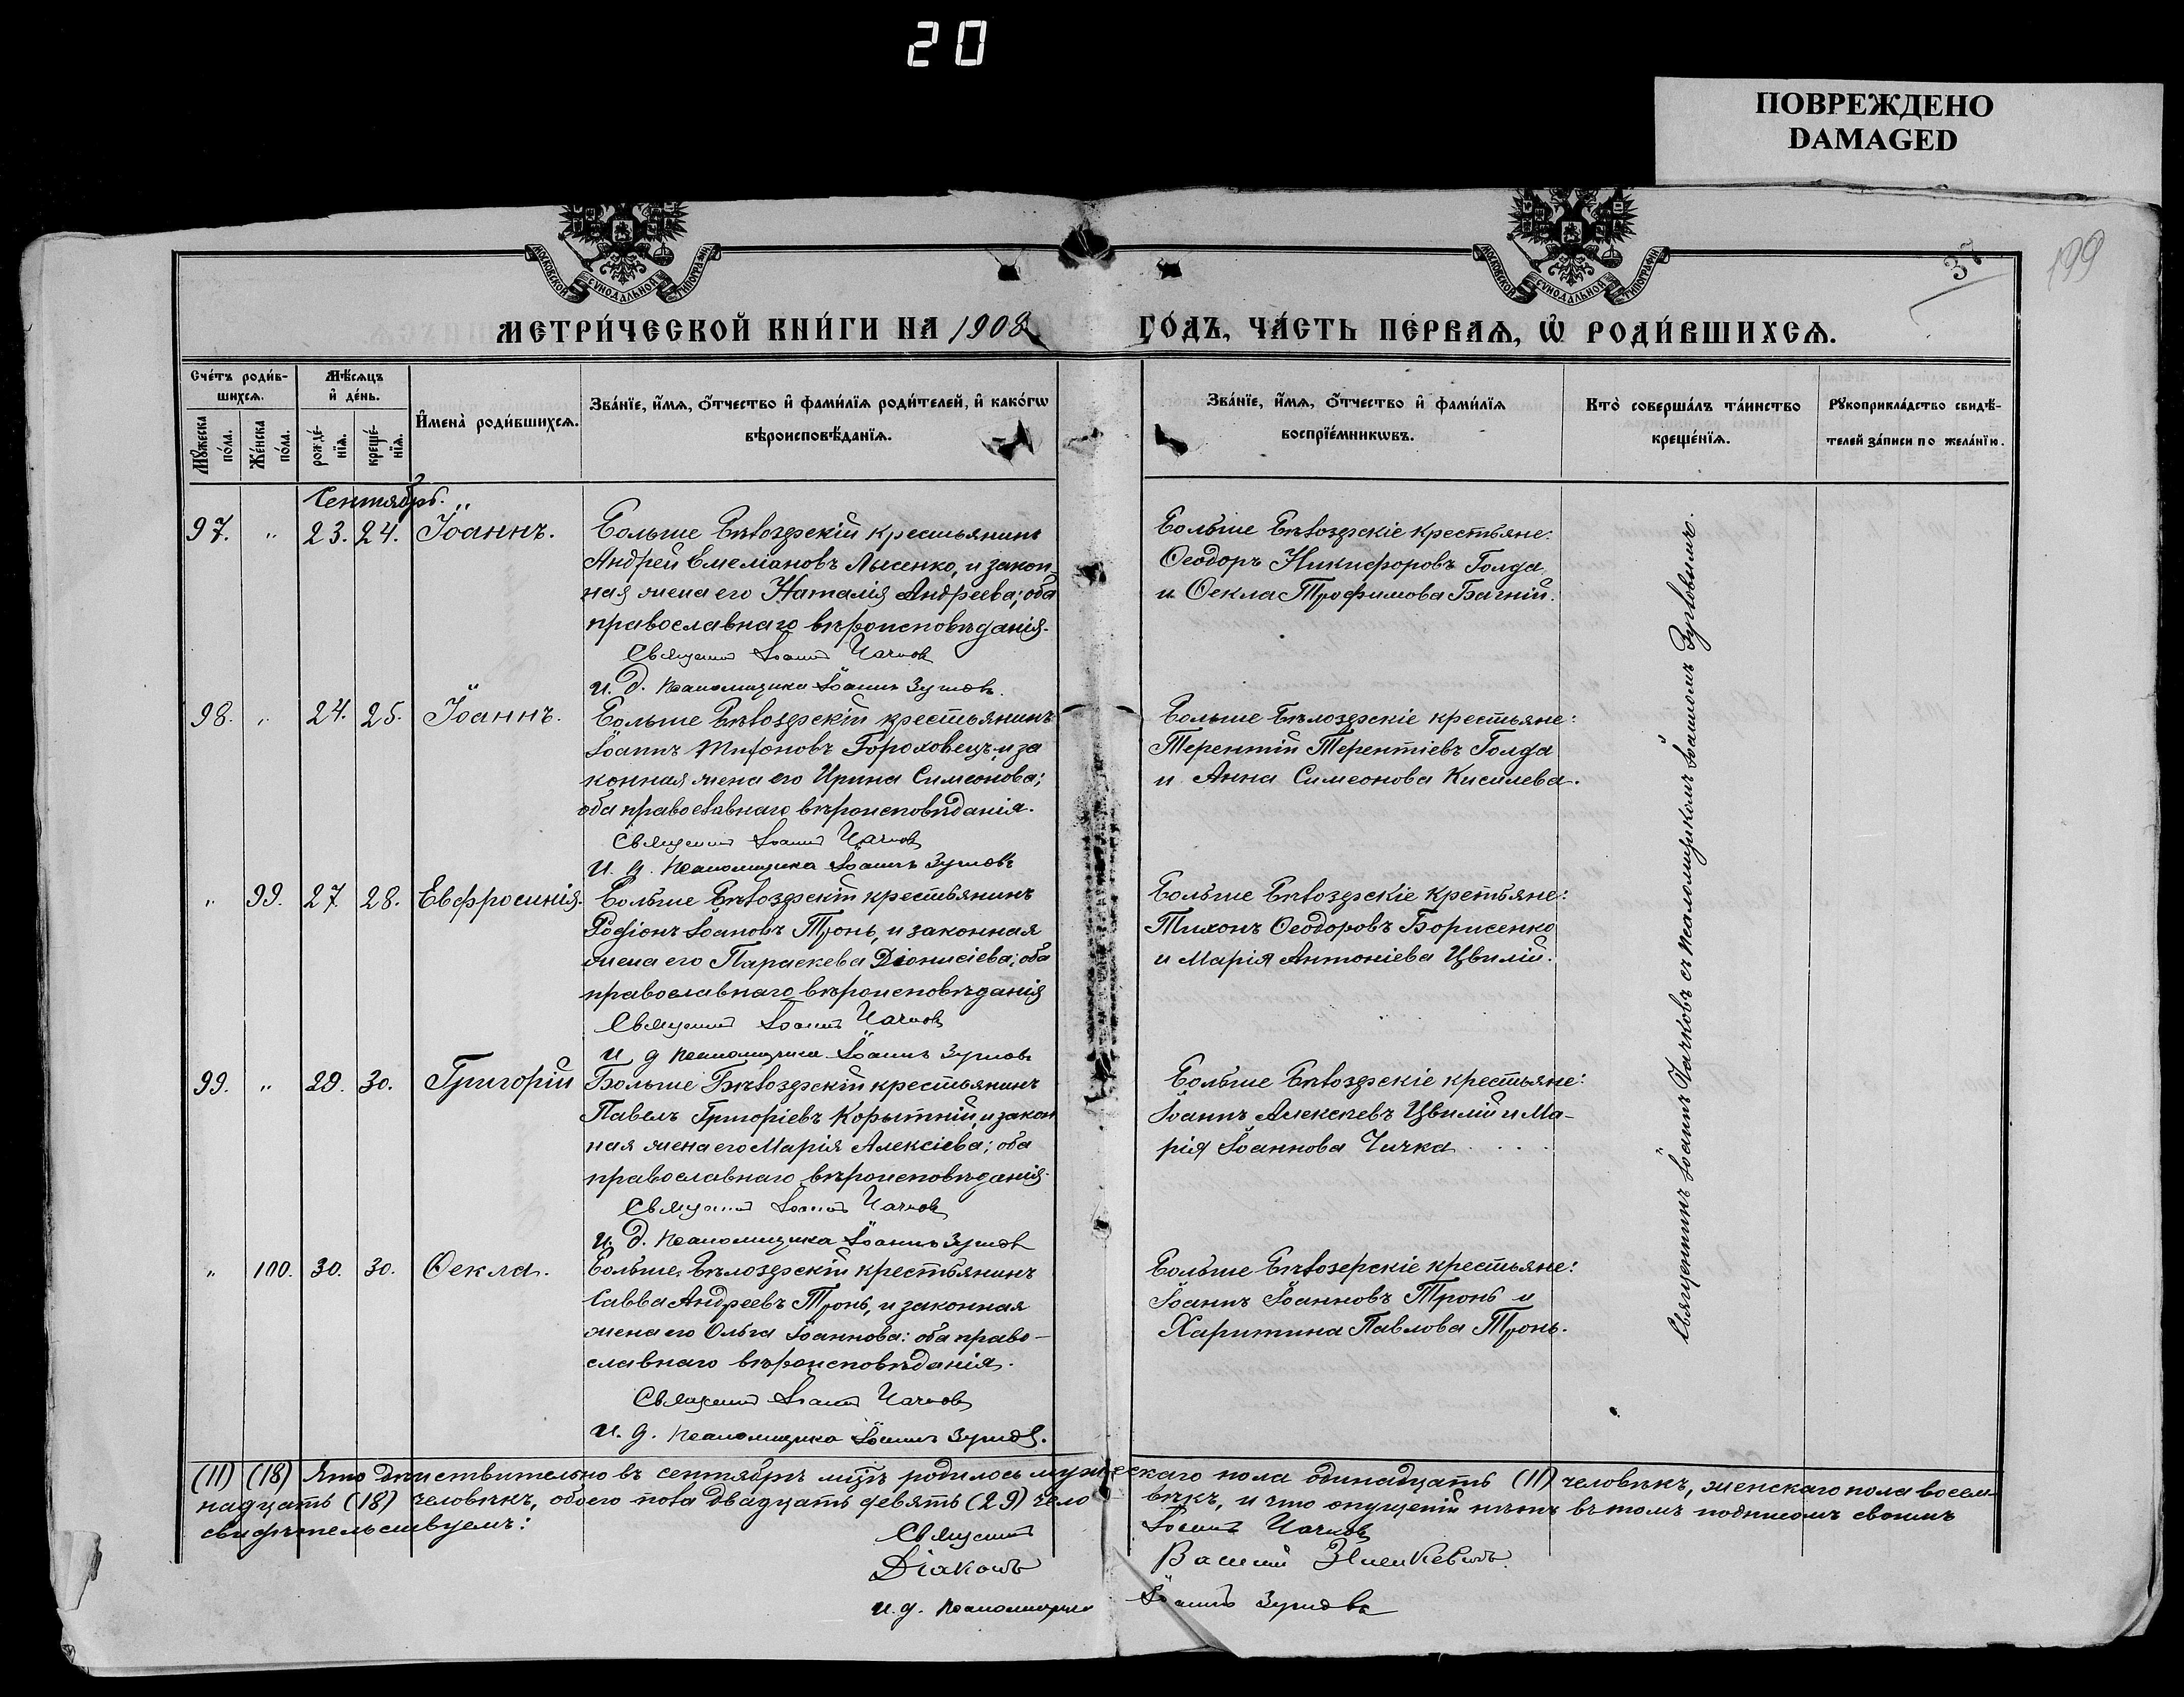 20
ПОВРЕЖДЕНО
DAMAGED
МОСКОВСКОЙ СѴНОДАЛЬНОЙ ТИПОГРАФІИ
МОСКОВСКОЙ СѴНОДАЛЬНОЙ ТИПОГРАФІИ
37
199
МЕТРИ́ЧЕСКОЙ КНИ́ГИ НА 1908
ГО́ДЪ, ЧА́СТЬ ПЕ́РВАѦ, Ѡ҆ РОДИ́ВШИХСѦ.
Сче́тъ роди́в-
шихсѧ.
Мѣ́сѧцъ
и҆ де́нь.
И҆мена̀ роди́вшихсѧ.
Зва́нїе, и҆́мѧ, ѻ҆́тчество и҆ фами́лїѧ роди́телей, и҆ како́гѡ
вѣроисповѣ́данїѧ.
Зва́нїе, и҆́мѧ, ѻ҆́тчество и҆ фами́лїѧ
воспрїе́мникѡвъ.
Кто̀ соверша́лъ та́инство
креще́нїѧ.
Рꙋкоприкла́дство свидѣ́-
телей за́писи по жела́нїю.
Мꙋ́жеска
по́ла.
Же́нска
по́ла.
рожде́-
нїѧ.
креще́-
нїѧ.
Сентябрь. „
97. „ 23. 24. Іоаннъ. Больше Бѣлозерскій крестьянинъ
Андрей Емеліановъ Лысенко, и закон-
ная жена его Наталія Андреева; оба
православнаго вѣроисповѣданія.
Священникъ Іоаннъ Чачковъ
И. д. псаломщика Іоаннъ
Больше Бѣлозерскіе крестьяне:
Ѳеодоръ Никифоровъ Голда
и Ѳекла Трофимова Багній.
98. „ 24. 25. Іоаннъ. Больше Бѣлозерскій крестьянинъ
Іоаннъ Гороховецъ и за
конная жена его Ирина Симеонова;
оба православнаго вѣроисповѣданія.
Священникъ Іоаннъ Чачковъ
И. д. псаломщика Іоаннъ
Больше Бѣлозерскіе крестьяне:
Терентій Терентіевъ Голда
и Анна Симеонова Киселева.
„ 99. 27. 28. Евфросинія. Больше Бѣлозерскій крестьянинъ
Родіонъ Іоановъ Тронь, и законная
жена его Параскева Діонисіева; оба
православнаго вѣроисповѣданія
Священникъ Іоаннъ Чачковъ
И д псаломщика Іоаннъ
Больше Бѣлозерскіе крестьяне:
Тихонъ Ѳеодоровъ Борисенко
и Марія Антоніева Цвилій.
99. „ 29. 30. Григорій Больше Бѣлозерскій крестьянинъ
Павелъ Григоріевъ Корытній, и закон
ная жена его Марія Алексіева; оба
православнаго вѣроисповѣданія.
Священникъ Іоаннъ Чачковъ
И. д. псаломщика Іоаннъ
Больше Бѣлозерскіе крестьяне:
Іоаннъ Алексѣевъ Цвилій и Ма-
рія Іоаннова Чичка . . . .
„ 100. 30. 30. Ѳекла. Больше Бѣлозерскій крестьянинъ
Савва Андреевъ Тронь, и законная
жена его Ольга Іоаннова: оба право-
славнаго вѣроисповѣданія.
Священникъ Іоаннъ Чачковъ
И. д. псаломщика Іоаннъ
Больше Бѣлозерскіе крестьяне:
Іоаннъ Іоанновъ Тронь и
Харитина Павлова Тронь.
Священникъ Іоаннъ Чачковъ съ псаломщикомъ Іоанномъ
(11) (18) Что дѣйствительно въ сентябрѣ мѣсяцѣ родилось мужескаго пола одинадцать (11) человѣкъ, женскаго пола восем-
надцать (18) человѣкъ, обоего пола двадцать девять (29) чело вѣкъ, и что опущеній нѣтъ въ томъ подписомъ своимъ
свидѣтельствуемъ:
Священникъ Іоаннъ Чачковъ
Діаконъ Василій
и. д. псаломщика Іоаннъ